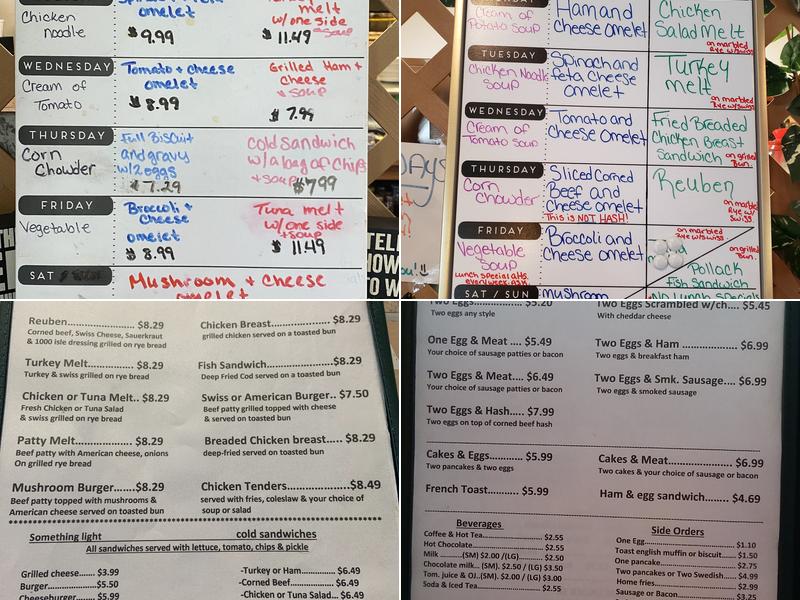 Chicken
noodle
omelet
$9.99
melt
w/one side
+soup
$11.49
WEDNESDAY
Cream of
Tomato
Tomato + cheese
omelet
$8.99
Grilled Ham +
cheese
+ soup
$7.99
THURSDAY
Corn
Chowder
Full Biscuit
and gravy
w/2 eggs
$7.29
cold sandwich
w/a bag of chips
+ soup $7.99
FRIDAY
Vegetable
Broccoli +
cheese
omelet
$8.99
Tuna melt
w/one side
+soup
$11.49
SAT
Mushroom + cheese
omelet
Cream of
Potato Soup
Ham and
Cheese omelet
Chicken
Salad Melt
on marbled
Rye w/swiss
TUESDAY
Chicken Noodle
Soup
Spinach and
feta Cheese
omelet
Turkey
melt
on marbled
Rye w/swiss
WEDNESDAY
Cream of
Tomato Soup
Tomato and
Cheese omelet
Fried Breaded
Chicken Breast
Sandwich on grilled
Bun.
THURSDAY
Corn
Chowder
Sliced Corned
Beef and
Cheese omelet
This is NOT HASH!
Reuben
on marbled
Rye w/
Swiss
FRIDAY
Vegetable
Soup
Broccoli and
Cheese omelet
on marbled
Rye w/swiss
on grilled
Bun.
Pollack
Fish Sandwich
SAT / SUN
mushroom
No Lunch Specials
Reuben................ $8.29
Corned beef, Swiss Cheese, Sauerkraut
& 1000 isle dressing grilled on rye bread
Turkey Melt........... $8.29
Turkey & swiss grilled on rye bread
Chicken or Tuna Melt.. $8.29
Fresh Chicken or Tuna Salad
& swiss grilled on rye bread
Patty Melt............$8.29
Beef patty with American cheese, onions
On grilled rye bread
Mushroom Burger.......$8.29
Beef patty topped with mushrooms &
American cheese served on toasted bun
Chicken Breast........ $8.29
grilled chicken served on a toasted bun
Fish Sandwich..........$8.29
Deep Fried Cod served on a toasted bun
Swiss or American Burger.. $7.50
Beef patty grilled topped with cheese
& served on toasted bun
Breaded Chicken breast.... $8.29
deep-fried served on toasted bun
Chicken Tenders...........$8.49
served with fries, coleslaw & your choice of
soup or salad
Something light
cold sandwiches
All sandwiches served with lettuce, tomato, chips & pickle
Grilled cheese....... $3.99
Burger...............$5.50
Cheeseburger........$5.99
-Turkey or Ham...........$6.49
-Corned Beef............. $6.49
-Chicken or Tuna Salad... $6.49
Two Eggs.........$5.20
Two eggs any style
One Egg & Meat..... $5.49
Your choice of sausage patties or bacon
Two Eggs & Meat.... $6.49
Your choice of sausage patties or bacon
Two Eggs & Hash..... $7.99
Two eggs on top of corned beef hash
Two Eggs Scrambled w/ch.... $5.45
With cheddar cheese
Two Eggs & Ham ............ $6.99
Two eggs & breakfast ham
Two Eggs & Smk. Sausage.... $6.99
Two eggs & smoked sausage
Cakes & Eggs............ $5.99
Two pancakes & two eggs
French Toast.......... $5.99
Cakes & Meat............... $6.99
Two cakes & your choice of sausage or bacon
Ham & egg sandwich........ $4.69
Beverages
Coffee & Hot Tea............ $2.55
Hot Chocolate............... $2.55
Milk ........(SM) $2.00 /(LG) $2.50
Chocolate milk... (SM). $2.50 / (LG) $3.50
Tom. juice & OJ..(SM). $2.00 / (LG) $3.00
Soda & Iced Tea............ $2.55
Side Orders
One Egg................. $1.10
Toast english muffin or biscuit..... $1.50
One pancake............. $2.75
Two pancakes or Two Swedish..... $4.99
Home fries.............. $2.99
Sausage or Bacon........ $3.25